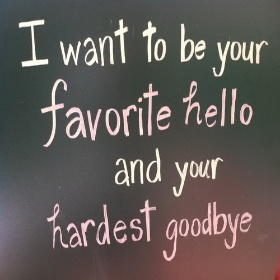 I want to be your
favorite hello
and your
hardest goodbye